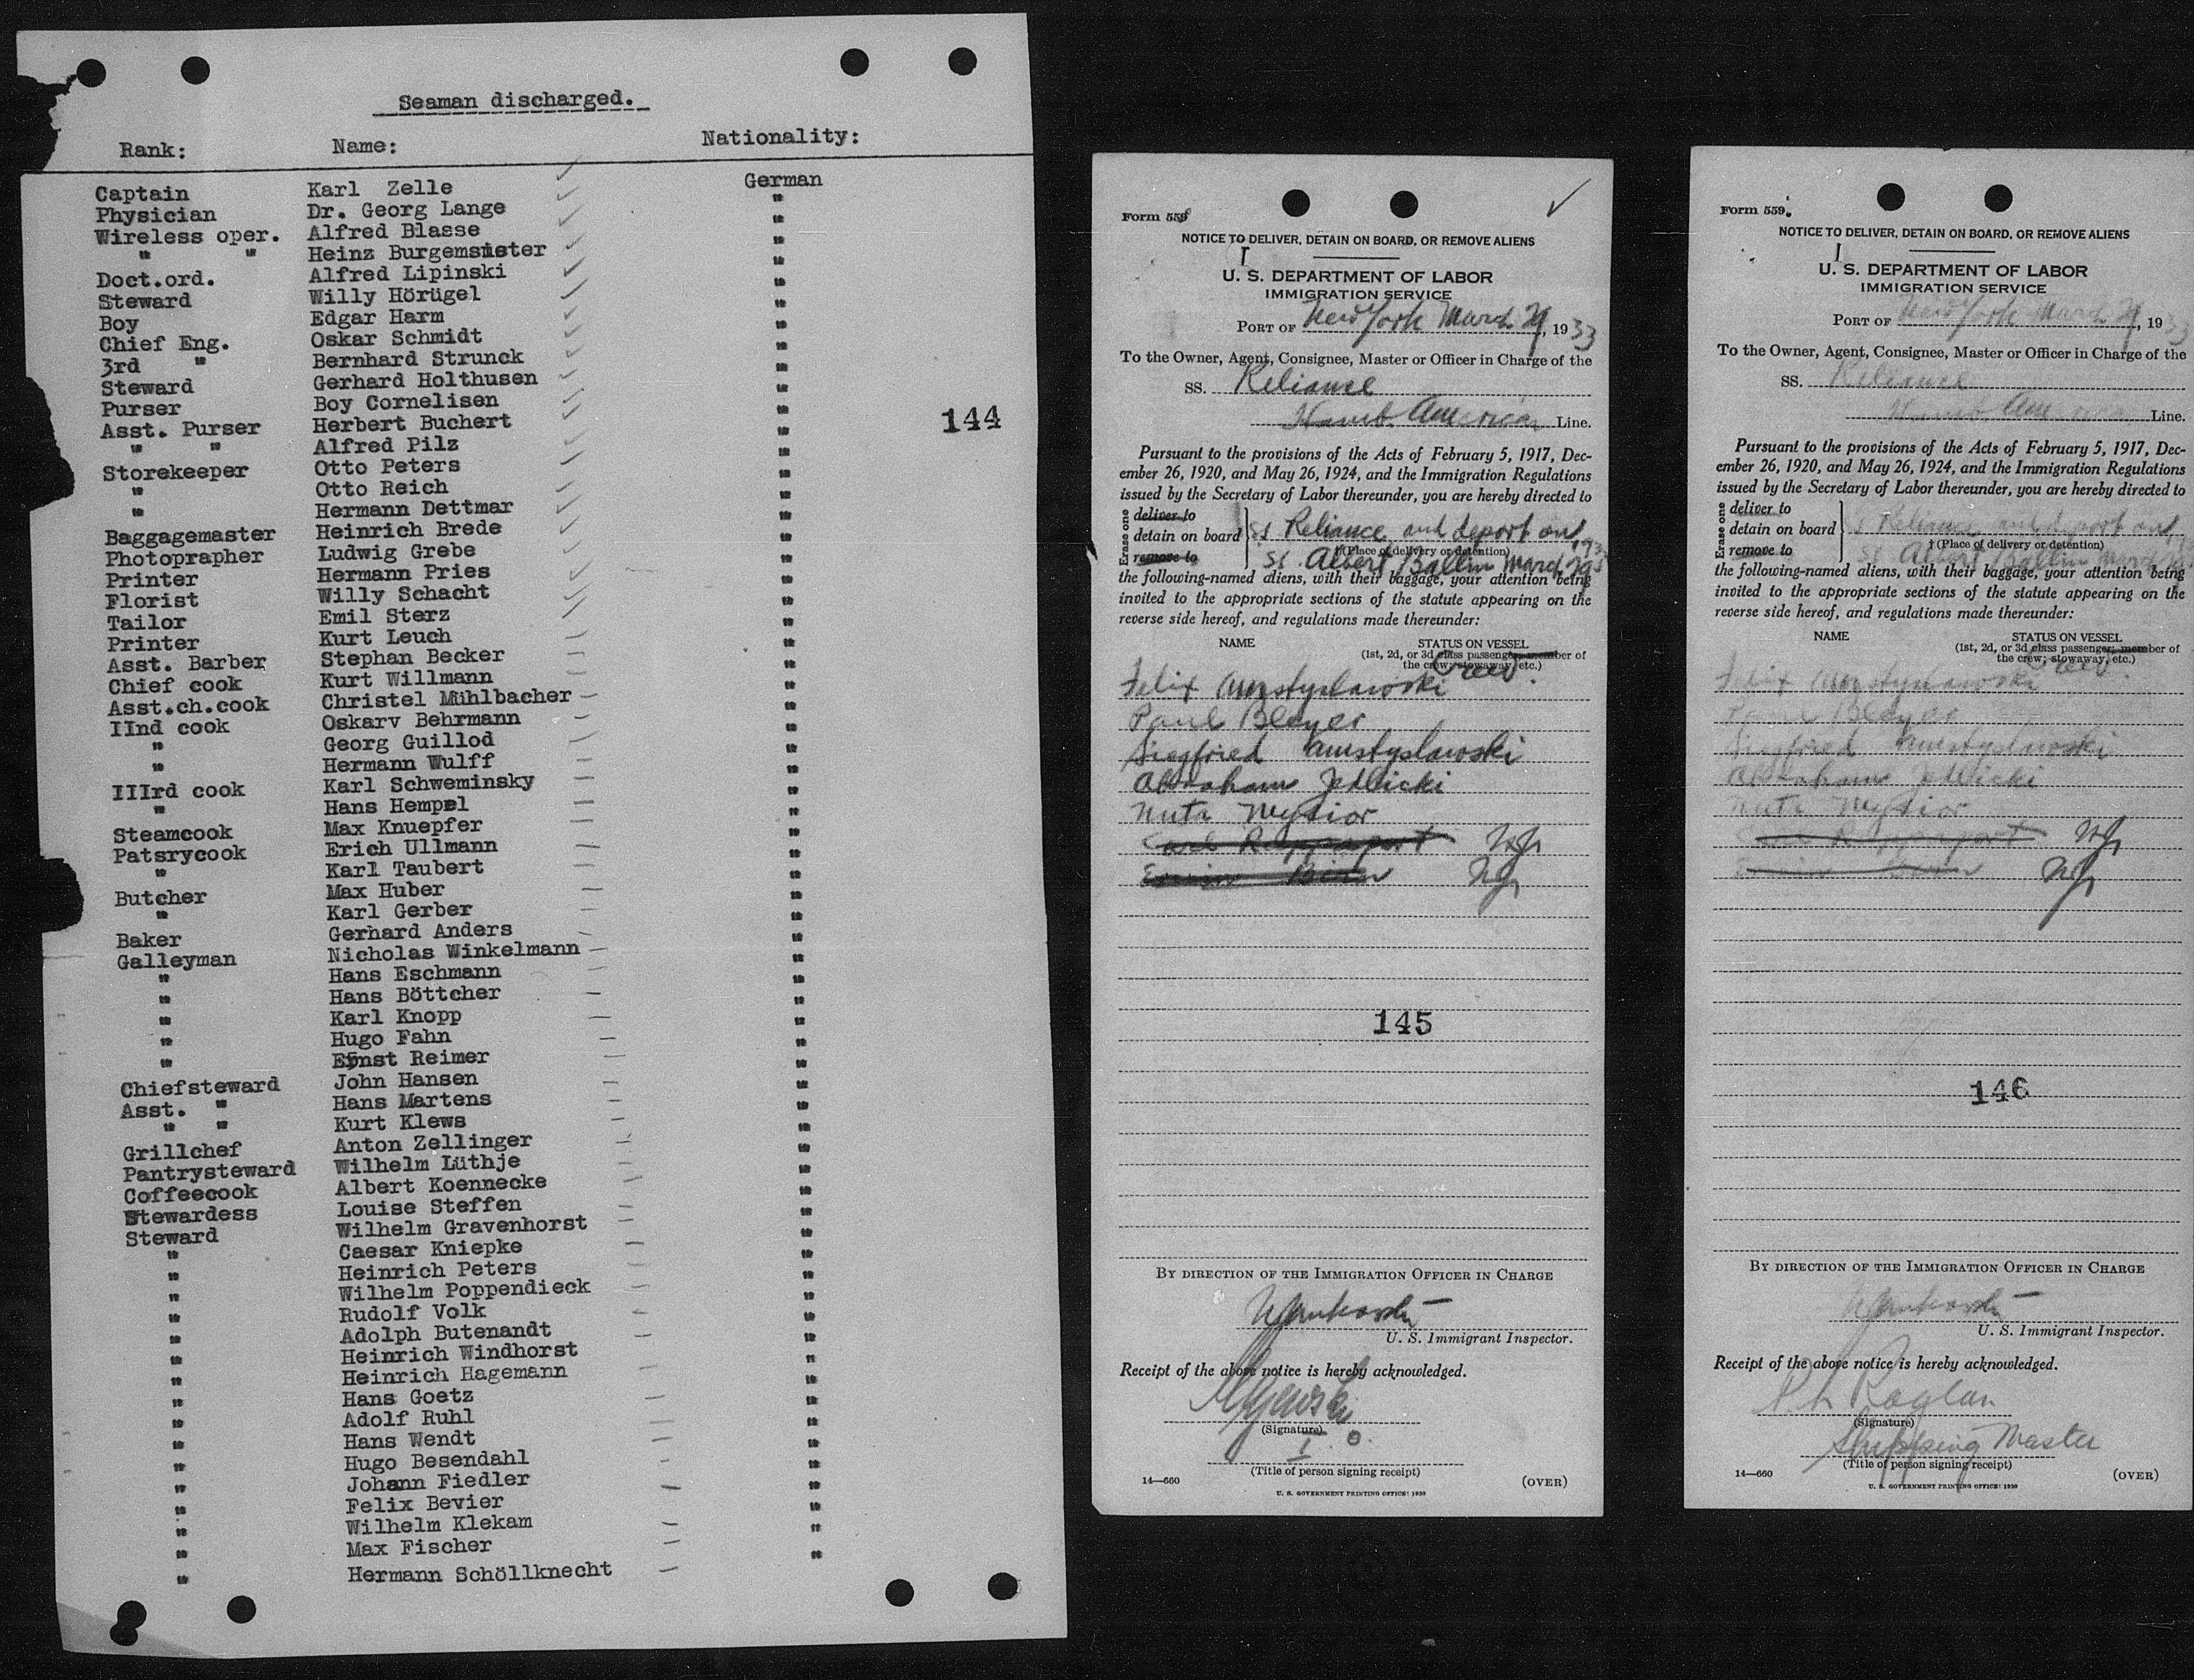 Seaman discharged.
Rank: Name: Nationality:
Captain Karl Zelle German
Physician Dr. Georg Lange "
Wireless oper. Alfred Blasse "
" " Heinz Burgemsiester "
Doct.ord. Alfred Lipinski "
Steward Willy Hörügel "
Boy Edgar Harm "
Chief Eng. Oskar Schmidt "
3rd " Bernhard Strunck "
Steward Gerhard Holthusen "
Purser Boy Cornelisen "
Asst. Purser Herbert Buchert "
144
" " Alfred Pilz "
Storekeeper Otto Peters "
" Otto Reich "
" Hermann Dettmar "
Baggagemaster Heinrich Brede "
Photoprapher Ludwig Grebe "
Printer Hermann Pries "
Florist Willy Schacht "
Tailor Emil Sterz "
Printer Kurt Leuch "
Asst. Barber Stephan Becker "
Chief cook Kurt Willmann "
Asst.ch.cook Christel Mühlbacher "
IInd cook Oskarv Behrmann "
" Georg Guillod "
" Hermann Wulff "
IIIrd cook Karl Schweminsky "
" Hans Hempel "
Steamcook Max Knuepfer "
Patsrycook Erich Ullmann "
" Karl Taubert "
Butcher Max Huber "
" Karl Gerber "
Baker Gerhard Anders "
Galleyman Nicholas Winkelmann "
" Hans Eschmann "
" Hans Böttcher "
" Karl Knopp "
" Hugo Fahn "
" Ernst Reimer "
Chiefsteward John Hansen "
Asst. " Hans Martens "
" " Kurt Klews "
Grillchef Anton Zellinger "
Pantrysteward Wilhelm Lüthje "
Coffeecook Albert Koennecke "
Stewardess Louise Steffen "
Steward Wilhelm Gravenhorst "
" Caesar Kniepke "
" Heinrich Peters "
" Wilhelm Poppendieck "
" Rudolf Volk "
" Adolph Butenandt "
" Heinrich Windhorst "
" Heinrich Hagemann "
" Hans Goetz "
" Adolf Ruhl "
" Hans Wendt "
" Hugo Besendahl "
" Johann Fiedler "
" Felix Bevier "
" Wilhelm Klekam "
" Max Fischer "
" Hermann Schöllknecht
Form 559
NOTICE TO DELIVER, DETAIN ON BOARD, OR REMOVE ALIENS
U. S. DEPARTMENT OF LABOR
IMMIGRATION SERVICE
PORT OF New York March 29, 1933
To the Owner, Agent, Consignee, Master or Officer in Charge of the
SS. Reliance
Hamb. American Line.
Pursuant to the provisions of the Acts of February 5, 1917, Dec-
ember 26, 1920, and May 26, 1924, and the Immigration Regulations
issued by the Secretary of Labor thereunder, you are hereby directed to
Erase one
deliver to
detain on board SS Reliance and deport on
†(Place of delivery or detention)
remove to SS. Albert Ballin March 29 1933
the following-named aliens, with their baggage, your attention being
invited to the appropriate sections of the statute appearing on the
reverse side hereof, and regulations made thereunder:
NAME STATUS ON VESSEL
(1st, 2d, or 3d class passenger; member of
the crew; stowaway, etc.)
Crew.
Felix
Paul Bleyer
Siegfried
Abraham Jedlicki
Nuta
Rappaport
145
BY DIRECTION OF THE IMMIGRATION OFFICER IN CHARGE
U. S. Immigrant Inspector.
Receipt of the above notice is hereby acknowledged.
(Signature)
I. O.
(Title of person signing receipt)
14—660 (OVER)
U. S. GOVERNMENT PRINTING OFFICE: 1930
Form 559
NOTICE TO DELIVER, DETAIN ON BOARD, OR REMOVE ALIENS
U. S. DEPARTMENT OF LABOR
IMMIGRATION SERVICE
PORT OF New York March 29, 1933
To the Owner, Agent, Consignee, Master or Officer in Charge of the
SS. Reliance
Hamb. American Line.
Pursuant to the provisions of the Acts of February 5, 1917, Dec-
ember 26, 1920, and May 26, 1924, and the Immigration Regulations
issued by the Secretary of Labor thereunder, you are hereby directed to
Erase one
deliver to
detain on board SS Reliance and deport on
†(Place of delivery or detention)
remove to SS Albert Ballin March 29
the following-named aliens, with their baggage, your attention being
invited to the appropriate sections of the statute appearing on the
reverse side hereof, and regulations made thereunder:
NAME STATUS ON VESSEL
(1st, 2d, or 3d class passenger; member of
the crew; stowaway, etc.)
Crew.
Felix
Paul Bleyer
Siegfried
Abraham Jedlicki
Nuta
Rappaport
146
BY DIRECTION OF THE IMMIGRATION OFFICER IN CHARGE
U. S. Immigrant Inspector.
Receipt of the above notice is hereby acknowledged.
Raglan
(Signature)
Shipping Master
(Title of person signing receipt)
14—660 (OVER)
U. S. GOVERNMENT PRINTING OFFICE: 1930